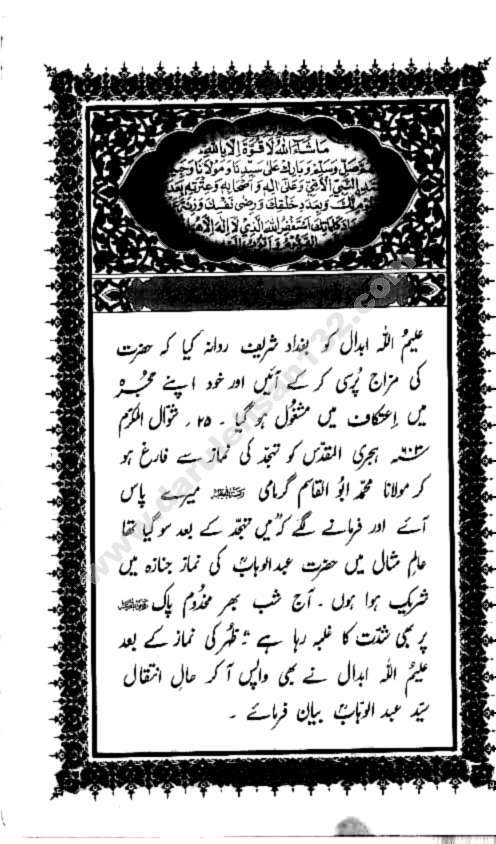 ماشاء الله لا قوة الا بالله
وصل وسلم وبارك على سيدنا ومولانا
النبي الامي وعلى اله واصحابه وعترته بعدد
وبعدد خلقك ورضى نفسك وزنة
استغفر الله الذي لا اله الا
علیمُ اللہ ابدال کو بغداد شریف روانہ کیا کہ حضرت
کی مزاج پُرسی کر کے آئیں اور خود اپنے حجرہ
میں اِعتکاف میں مشغُول ہو گیا ۔ ۲۵ ، شوّال المکرّم
۶۰۳ ہجری المقدّس کو تہجّد کی نماز سے فارغ ہو
کر مولانا محمد ابُو القاسم گرمامی میرے پاس
آئے اور فرمانے لگے کہ "میں تہجّد کے بعد سو گیا تھا
عالمِ مثال میں حضرت عبدالوہابؒ کی نمازِ جنازہ میں
شریک ہوا ہوں ۔ آج شب بھر مخدُوم پاک
پر بھی شدّت کا غلبہ رہا ہے" ظہُر کی نماز کے بعد
علیمُ اللہ ابدال نے بھی واپس آ کر حالِ انتقال
سیّد عبدالوہابؒ بیان فرمائے ۔
www.darulehsan132.com